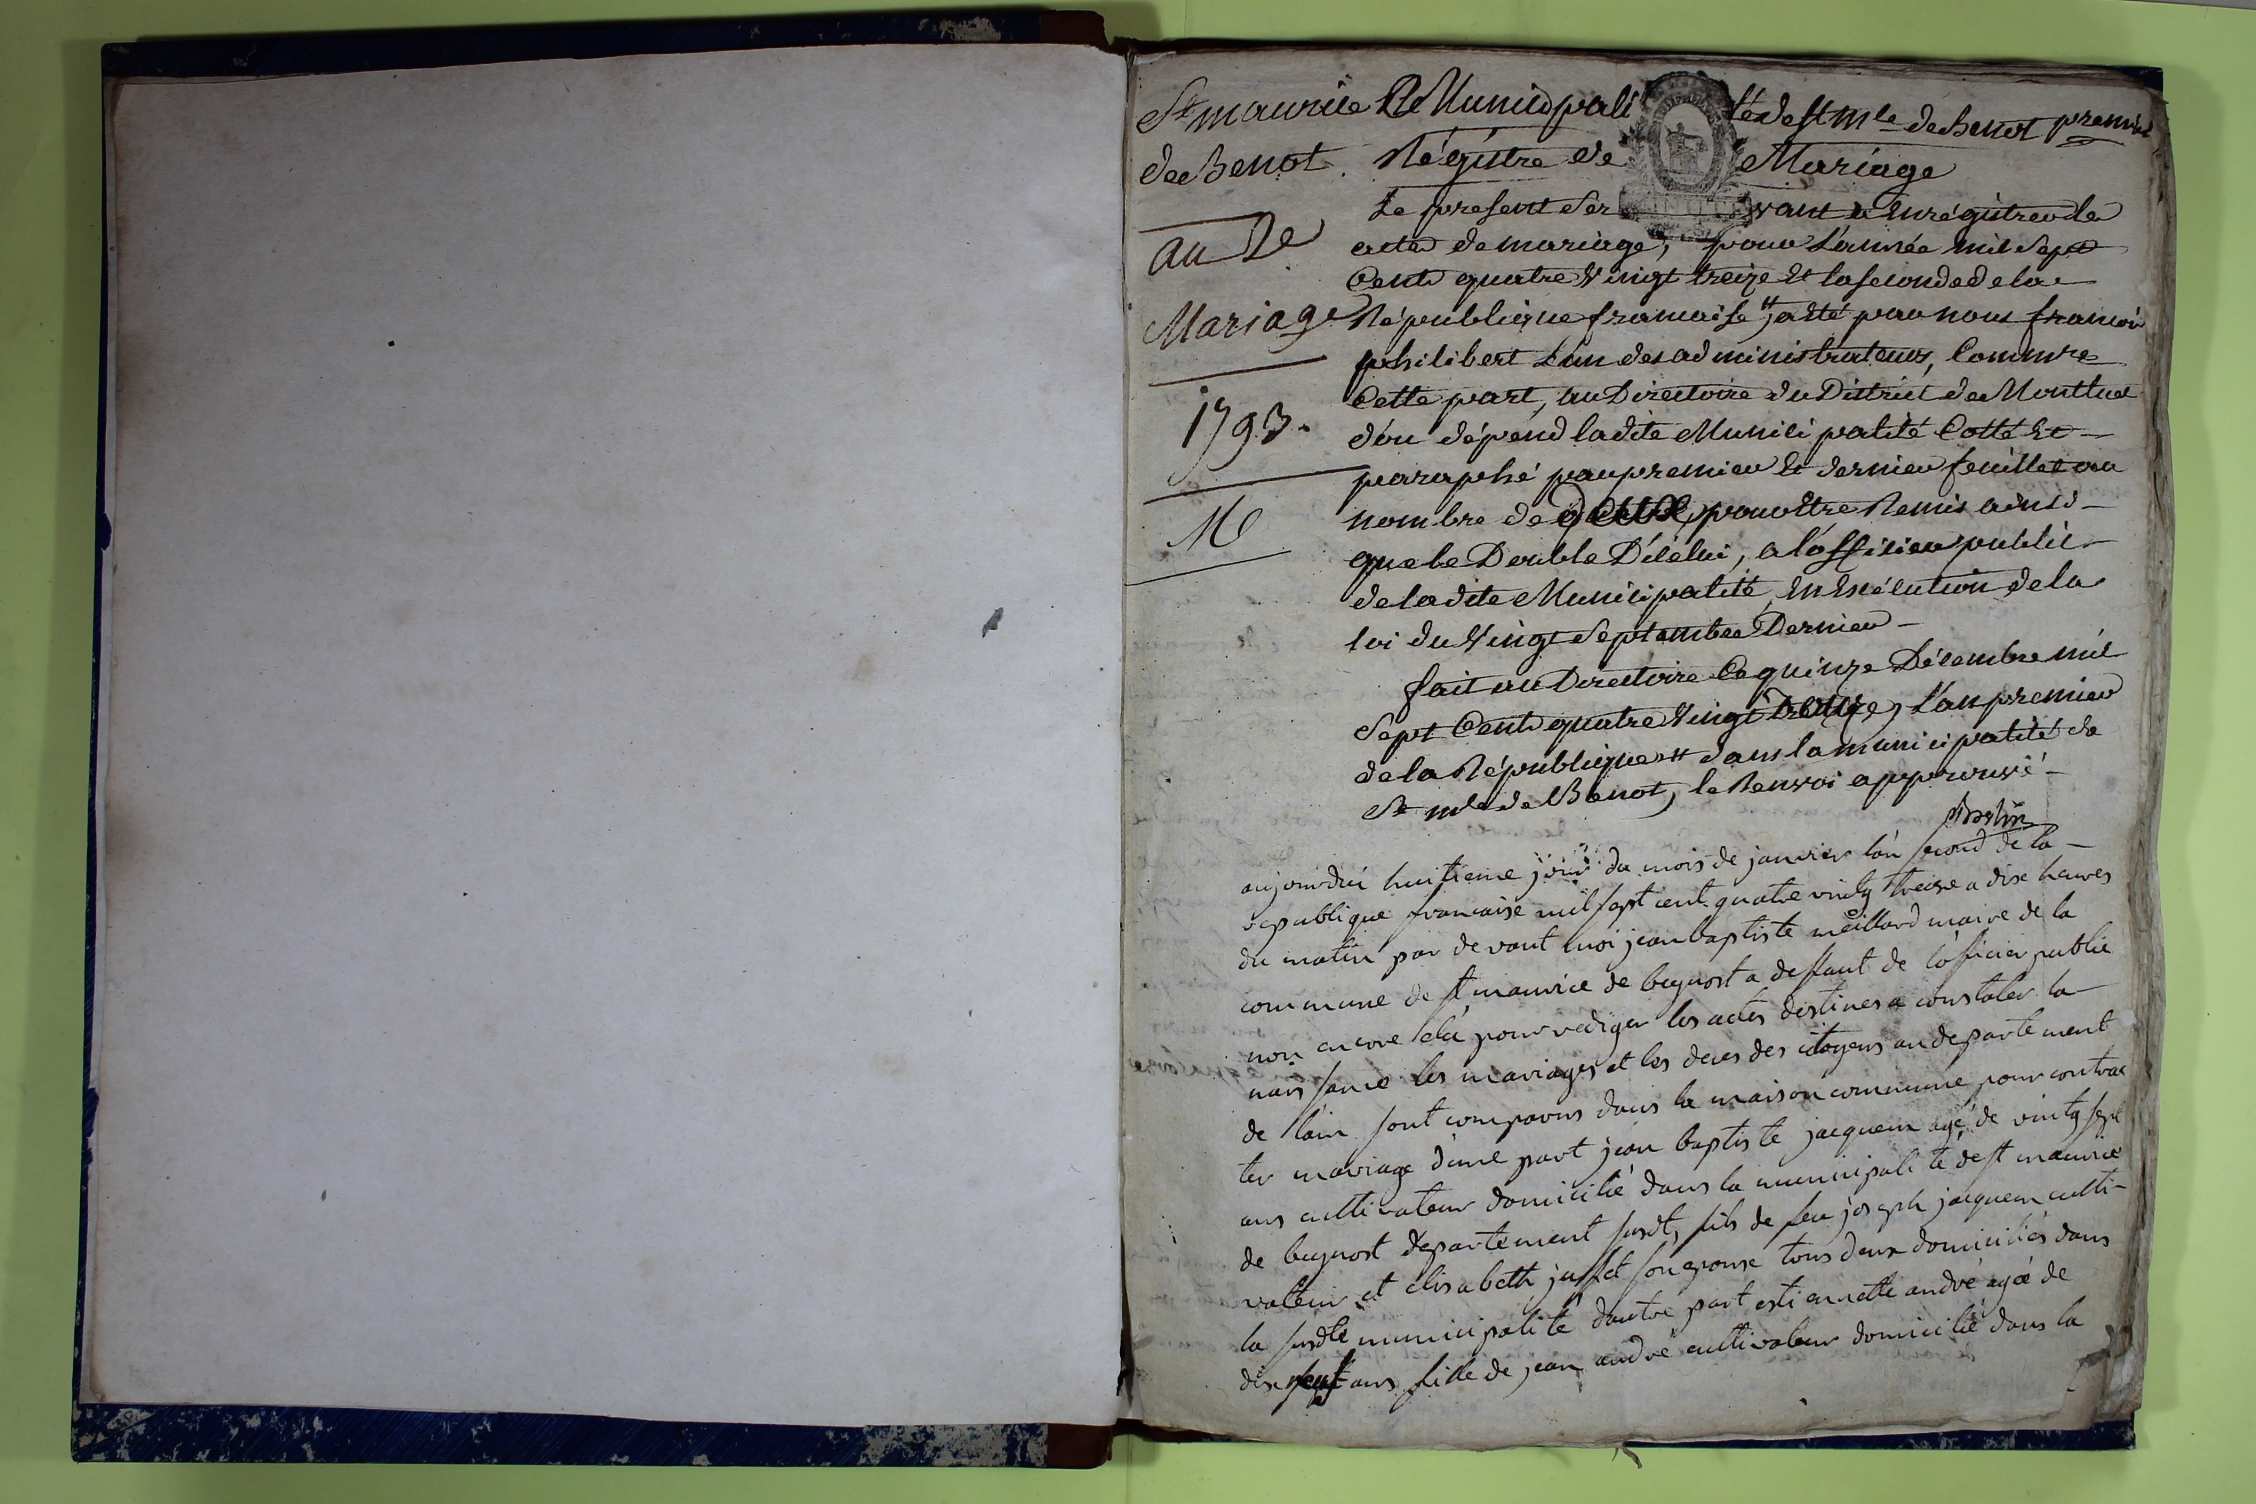 St maurice
de Benot
au De
Mariage
1793.
M
Municipalité de St mce de Benot premier
Régistre de Mariage
Le présent servant a Enrégistrer les
actes de mariage, pour L'année mil sept
Cents quatre Vingt treize Et la seconde de la
République françaoise, a été par nous françois
philibert L'un des administrateurs, Commre
Cette part, au Directoire du District de Montluel
d'ou dépend ladite Municipalité Cotté Et
paraphé par premier Et dernier feuillet au
nombre de pour Etre Remis ainsi
que le Double D'icelui, a l'officier public
de ladite Municipalité, En Exécution de la
loi du Vingt Septembre Dernier
fait au Directoire Ce quinze Décembre mil
Sept Cents quatre Vingt L'an premier
de la République dans la municipalité de
St mce de Benot, le Renvoi approuvé
aujourdui huitieme jour du mois de janvier l'an second de la
republique francaise mil sept cent quatre vintg treise a dix heures
du matin par devant moi jean baptiste meillard maire de la
commune de st maurice de beynost a deffaut de l'oficier public
non encore elu pour rediger les actes destines a constater la
naissance les mariages et les deces des citoyens au departement
de l'ain sont comparus dans la maison commune pour contrac
ter mariage d'une part jean baptiste jacquem agé de vintg sept
ans cultivateur domicilié dans la municipalité de st maurice
de beynost departement susdt, fils de feu joseph jacquem culti-
vateur et elisabeth son epouse tous deux domiciliés dans
la susdte municipalité d'autre part estiennette andré agée de
dix ans fille de jean andré cultivateur domicilié dans la